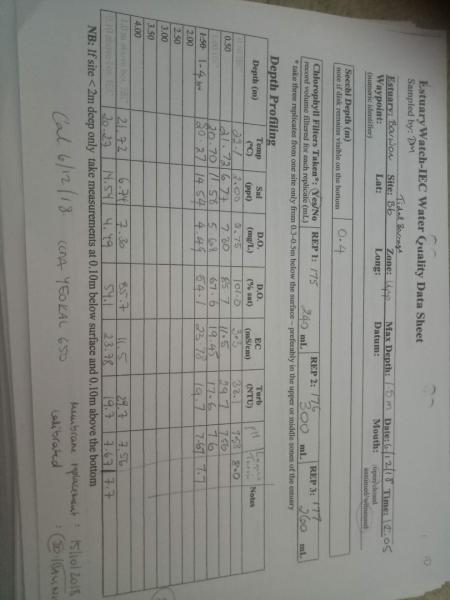 EstuaryWatch-IEC Water Quality Data Sheet
Sampled by: DM
Estuary: Barwon Site: B6 Tidal Barrage Zone: Upp Max Depth: 1.5 m Date: 6/12/18 Time: 12.05
Waypoint: Lat: Long: Datum: Mouth: open/closed
(numeric identifier)
Secchi Depth (m) 0.4
note if disk remains visible on the bottom
Chlorophyll Filters Taken*: Yes/No REP 1: 175 REP 2: 176 REP 3: 177
record volume filtered for each replicate (mL) 240 mL 300 mL 260 mL
* take three replicates from one site only from 0.3-0.5m below the surface – preferably in the upper or middle zones of the estuary
Depth Profiling
Depth (m) Temp (°C) Sal (ppt) D.O. (mg/L) D.O. (% sat) EC (mS/cm) Turb (NTU) pH Notes
0.50 21.72 6.77 7.30 85.7 11.5 29.7 7.56
20.70 11.58 5.68 67.6 19.45 17.6 7.6
1.50 1.4 20.27 14.54 4.49 54.1 23.78 19.7 7.67 7.7
2.00
2.50
3.00
3.50
4.00
21.72 6.74 7.30 85.7 11.5 29.7 7.56
20.27 14.54 4.49 54.1 23.78 19.7 7.67 7.7
NB: If site < 2m deep only take measurements at 0.10m below surface and 0.10m above the bottom
Cal 6/12/18 CCMA YEOKAL 650 membrane replacement: 15/10/2018
calibrated